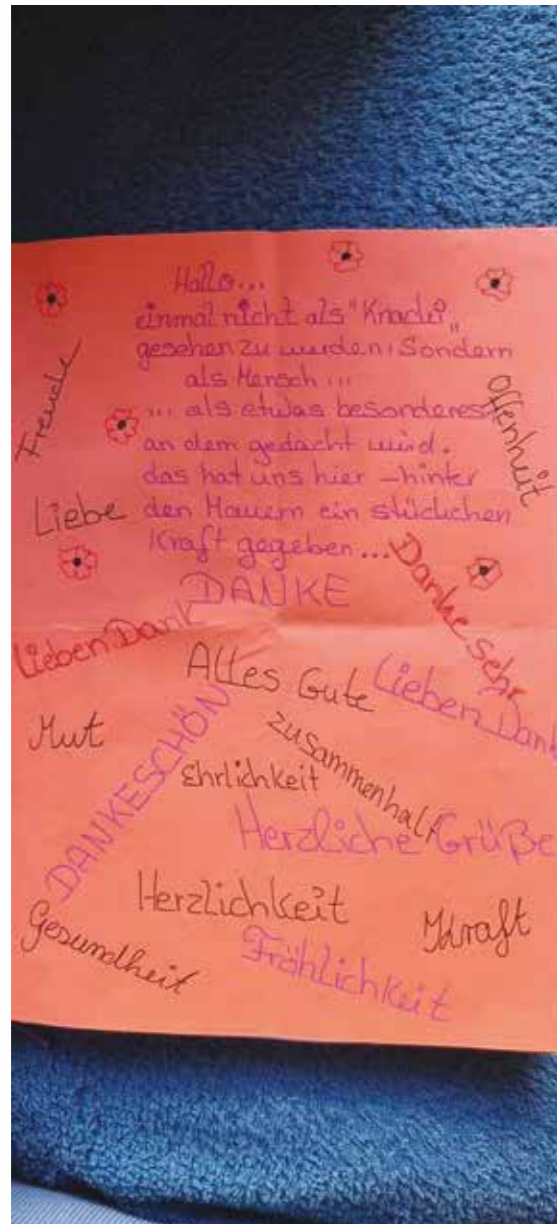 Hallo...
einmal nicht als "Knacki„
gesehen zu werden, Sondern
als Mensch ...
... als etwas besonderes
an dem gedacht wird.
das hat uns hier – hinter
den Mauern ein stückchen
Kraft gegeben ...
DANKE
Freude
Offenheit
Liebe
Danke sehr
Lieben Dank
Alles Gute
Lieben Dank
Mut
DANKESCHÖN
Zusammenhalt
Ehrlichkeit
Herzliche Grüße
Herzlichkeit
Kraft
Gesundheit
Fröhlichkeit